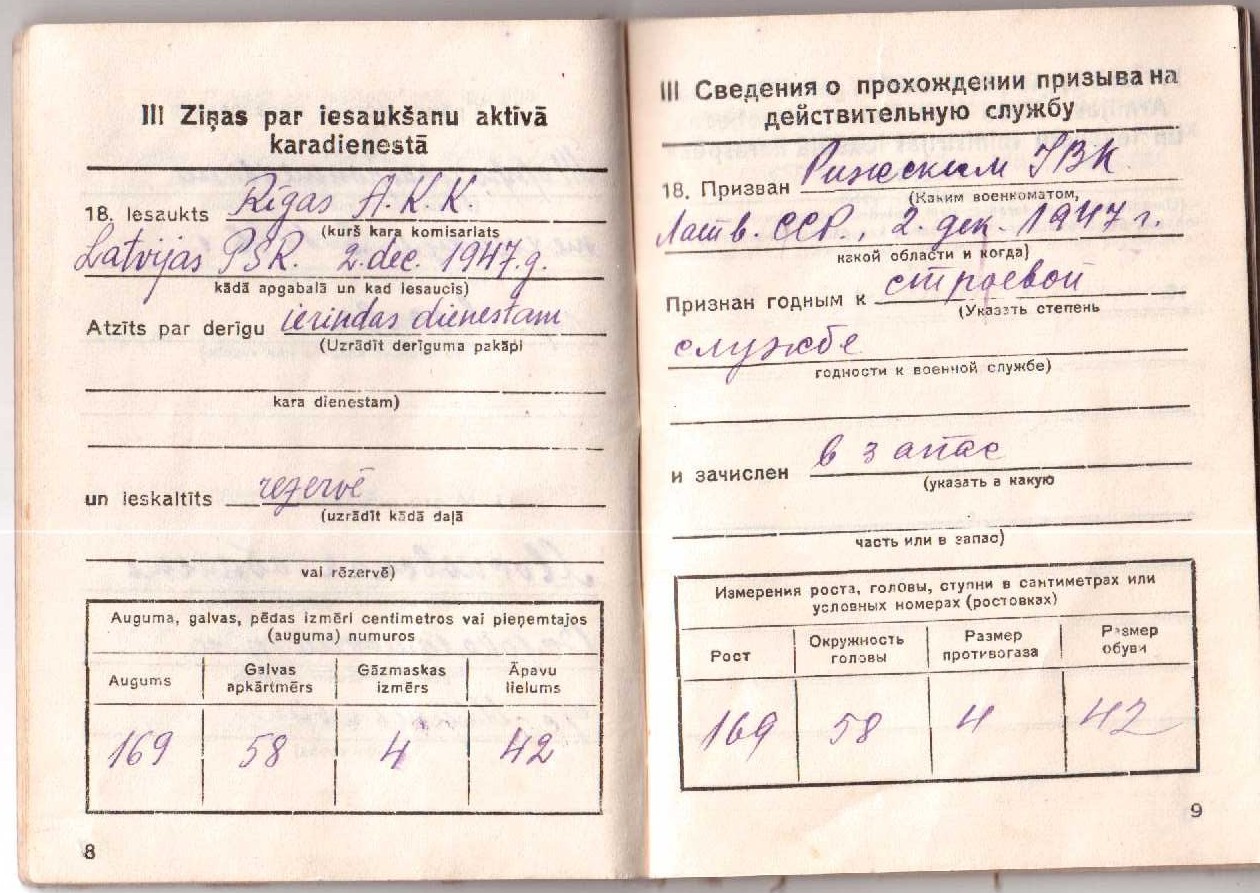 III Ziņas par iesaukšanu aktīvā
karadienestā
18. Iesaukts Rīgas A.K.K.
(kurš kara komisariats
Latvijas PSR. 2. dec. 1947. g.
kādā apgabalā un kad iesaucis)
Atzīts par derīgu ierindas dienestam
(Uzrādīt derīguma pakāpi
kara dienestam)
un ieskaitīts rezervē
(uzrādīt kādā daļā
vai rēzervē)
Auguma, galvas, pēdas izmēri centimetros vai pieņemtajos
(auguma) numuros
Augums
Galvas apkārtmērs
Gāzmaskas izmērs
Āpavu lielums
169 58 4 42
8
III Сведения о прохождении призыва на
действительную службу
18. Призван Рижским ГВК
(Каким военкоматом,
Латв. ССР., 2. дек. 1947 г.
какой области и когда)
Признан годным к строевой
(Указать степень
службе
годности к военной службе)
и зачислен в запас
(указать в какую
часть или в запас)
Измерения роста, головы, ступни в сантиметрах или
условных номерах (ростовках)
Рост
Окружность головы
Размер противогаза
Размер обуви
169 58 4 42
9